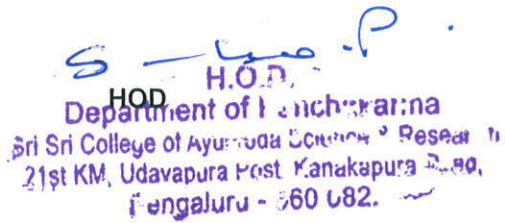 H.O.D.
HOD
Department of Panchakarma
Sri Sri College of Ayurveda Science & Research
21st KM, Udayapura Post, Kanakapura Road,
Bengaluru - 560 082.